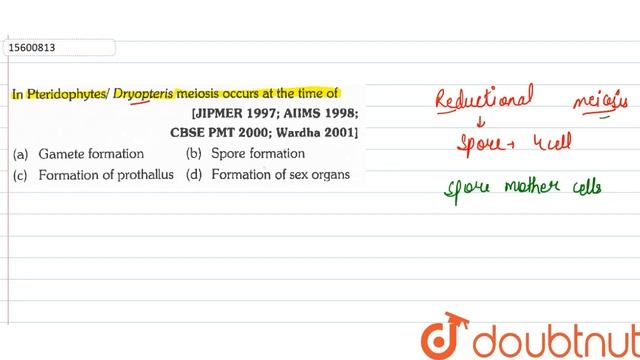 15600813
In Pteridophytes/ Dryopteris meiosis occurs at the time of
[JIPMER 1997; AIIMS 1998;
CBSE PMT 2000; Wardha 2001]
(a) Gamete formation (b) Spore formation
(c) Formation of prothallus (d) Formation of sex organs
Reductional meiosis
↓
Spore → 4 cell
Spore mother cells
doubtnut